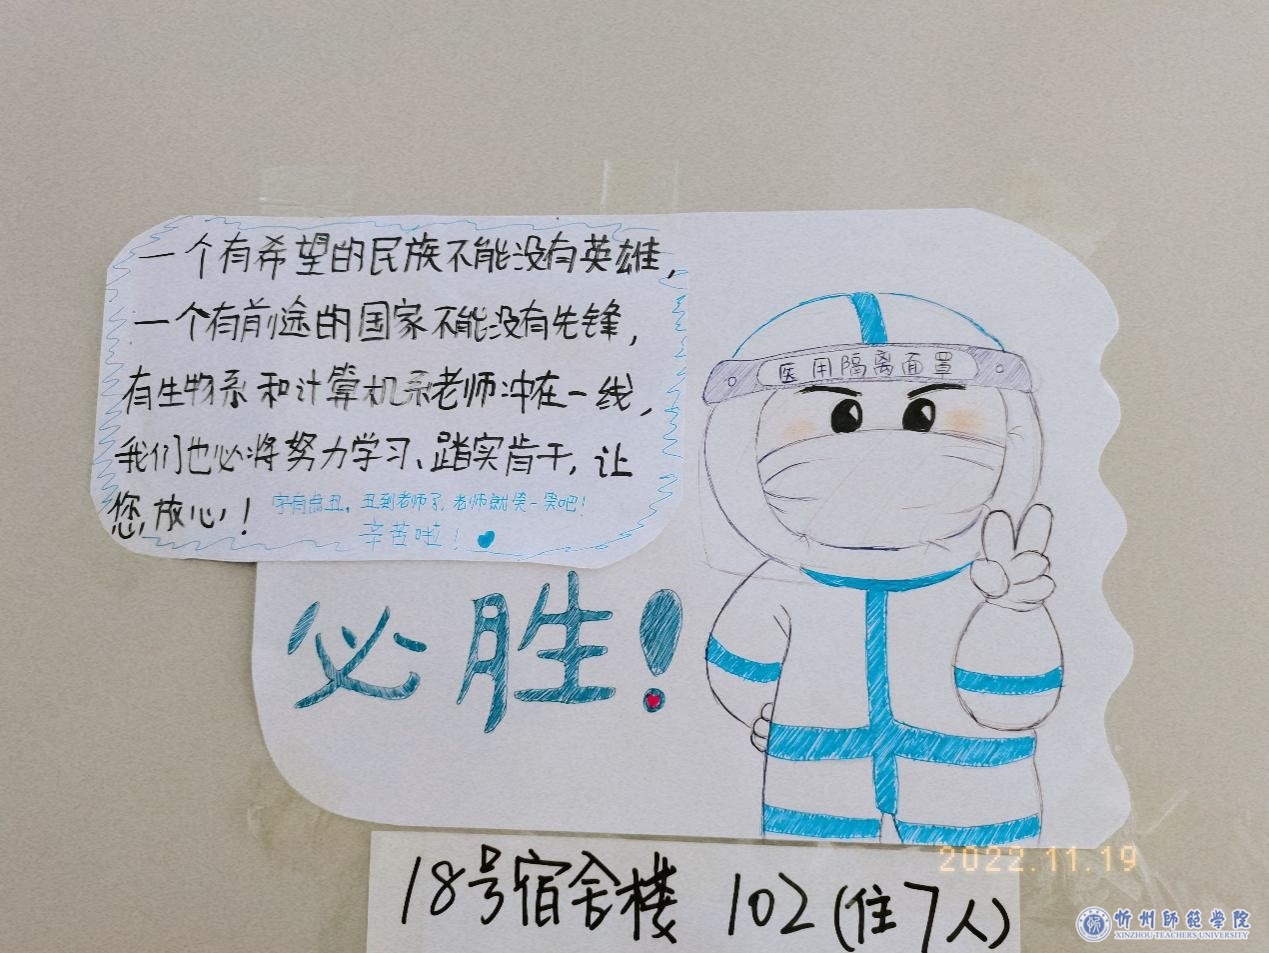 一个有希望的民族不能没有英雄，
一个有前途的国家不能没有先锋，
有生物系和计算机系老师冲在一线，
我们也必将努力学习、踏实肯干，让
您放心！
字有点丑，丑到老师了，老师就笑一笑吧！
辛苦啦！
医用隔离面罩
必胜！
18号宿舍楼 102(住7人)
2022.11.19
忻州師範學院
XINZHOU TEACHERS UNIVERSITY